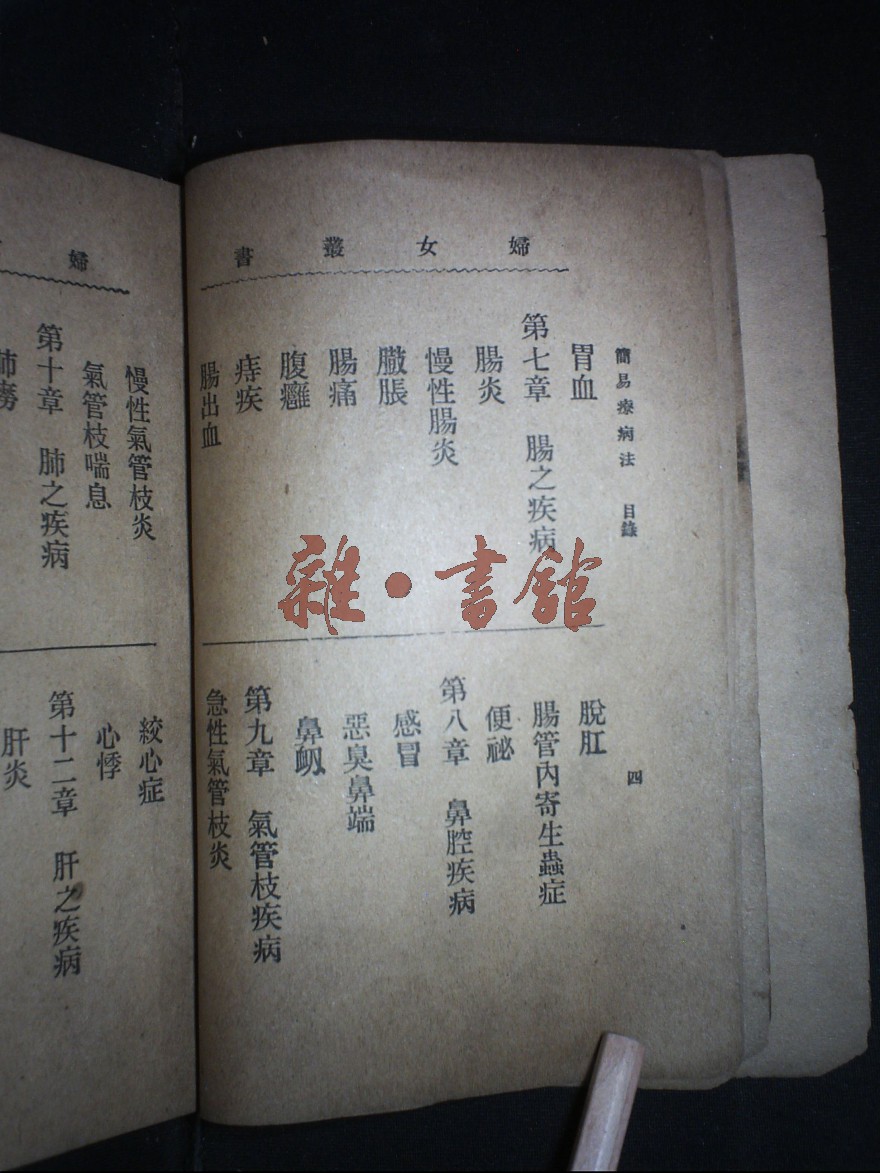 婦女叢書
簡易療病法 目錄
四
胃血
第七章 腸之疾病
腸炎
慢性腸炎
臌脹
腸痛
腹癰
痔疾
腸出血
脫肛
腸管內寄生蟲症
便祕
第八章 鼻腔疾病
感冒
惡臭鼻端
鼻衂
第九章 氣管枝疾病
急性氣管枝炎
婦
慢性氣管枝炎
氣管枝喘息
第十章 肺之疾病
絞心症
心悸
第十二章 肝之疾病
肝炎
雜·書館